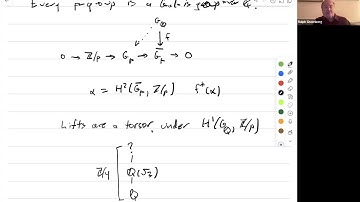 Every p-group is a Galois group over Q.
G_Q
f
0 → Z/p → G_p → \bar{G}_p → 0
α = H²(\bar{G}_p, Z/p) f*(α)
Lifts are a torsor under H¹(G_Q, Z/p)
?
Z/4 Q(√
Q
Ralph Greenberg